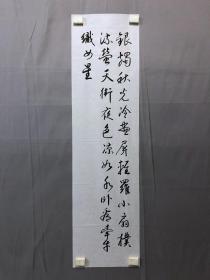 銀燭秋光冷畫屏輕羅小扇撲
流螢天街夜色涼如水卧看牽牛
織女星